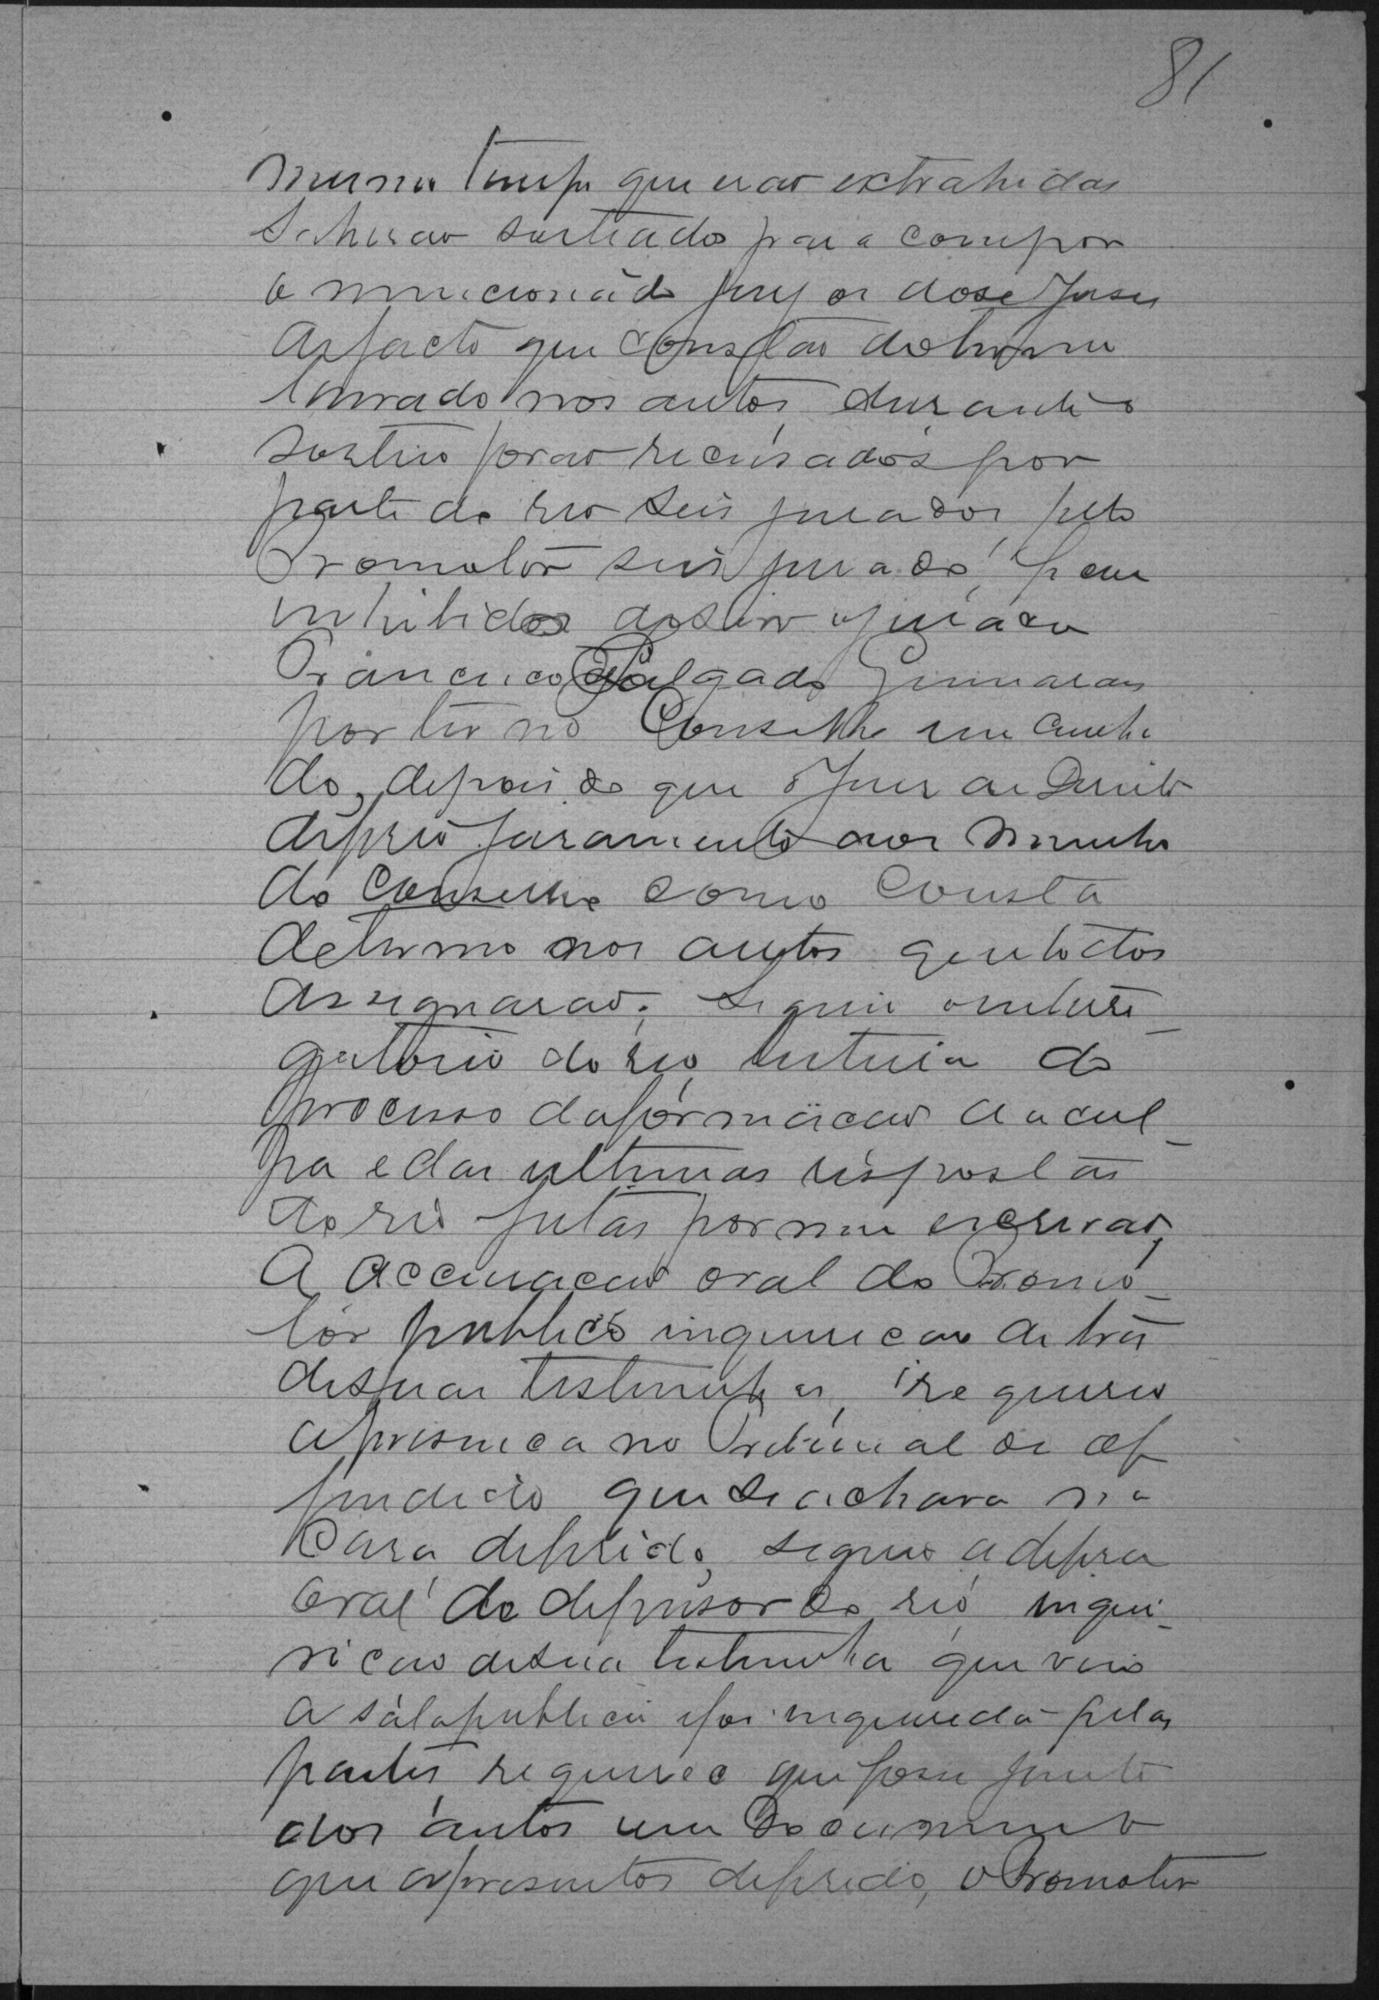 81
mesmo tempo que erão extrahidas
Sahirão sorteados para compor
o mencionado jury os dose Juses
de facto que constão do termo
lavrado nos autos, durante o
sorteio forão recusados por
parte do reo seis jurados, pelo
Promotor seis jurados, foi
inhibido de servir o jurado
Francisco Salgado Guimarães
por ter no Conselho um cunha
do, depois do que o Juiz de Direito
deferio juramento aos membros
do Conselho como Consta
do termo nos autos que todos
assignarão; Seguio o interro
gatorio do reo, leitura do
processo da formação da cul_
pa e das ultimas respostas
do reo feitas por mim escrivão,
A accusação oral do Promo_
tor publico inquirição de tres
de suas testemunhas, requereu
a presença no Tribunal do of
fendido que se achava na
Casa, deferido, seguio a defesa
oral do defensor do reo, inqui_
rição de sua testemunha que veio
a sala publica e foi inquerida pelas
partes requereo que fosse junto
aos autos um Documento
que apresentou deferido, o Promotor